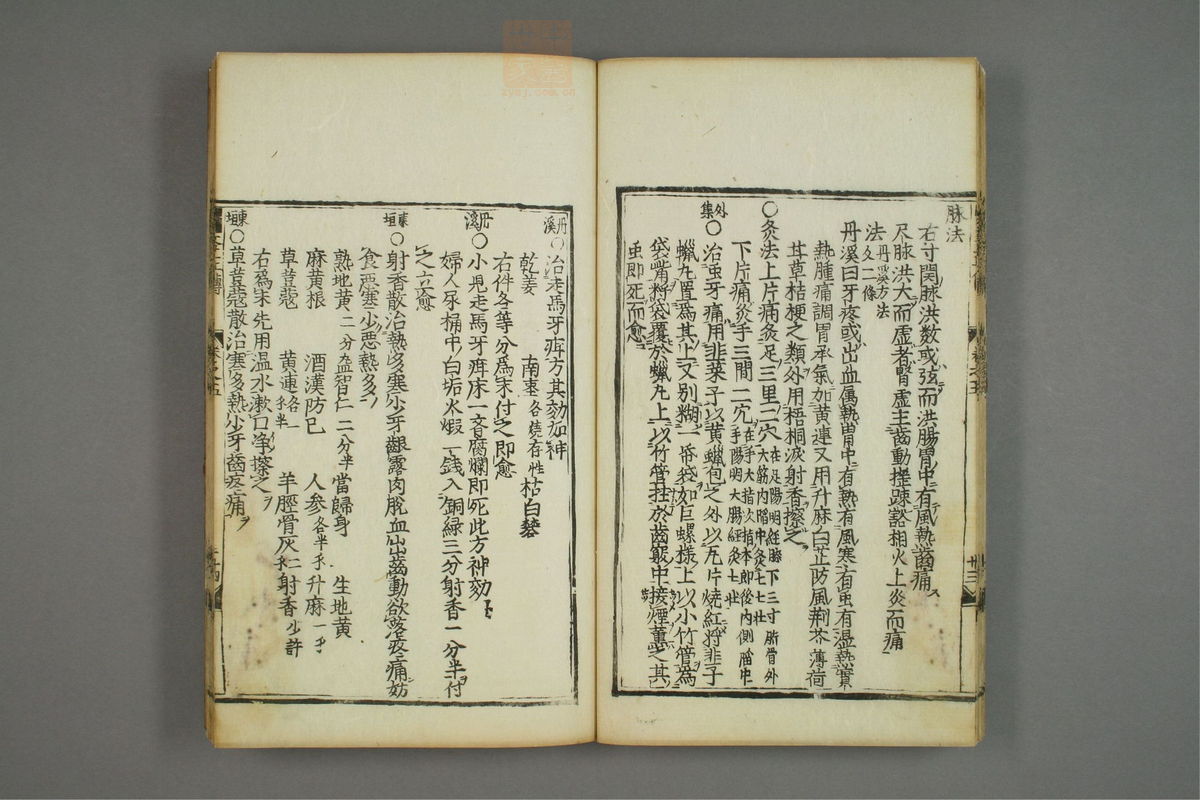 脉法
右寸関脉洪数或弦而洪腸胃中有風熱齒痛
尺脉洪大而虚者腎虚主齒動揺疎豁相火上炎而痛
法 丹溪方法 又一條
丹溪曰牙疼或出血属熱胃中有熱有風寒有虫有湿熱實
熱腫痛調胃承氣加黄連又用升麻白芷防風荆芥薄荷
甘草桔梗之類外用梧桐泪射香擦之
○灸法上片痛灸足三里二穴 在足陽明経膝下三寸䯒骨外大筋内陷中灸七七壮
下片痛灸手三間二穴 在手大指次指本節後内側陷中手陽明大腸経灸七壮
外集○治虫牙痛用韭菜子以黄蠟包之外以瓦片燒紅将韭子
蠟丸置為其上又別糊一帋袋如巨螺様上以小竹管為
袋觜将袋覆於蠟丸上以竹管拄於齒竅中接煙薫之其
虫即死而愈
丹溪○治走馬牙疳方其効如神
乾姜 南棗各燒存性 枯白礬
右件各等分為末付之即愈
丹溪○小児走馬牙疳床一宵腐爛即死此方神効
婦人尿桶中白垢火煅一錢入銅緑三分射香一分半付
之立愈
東垣○射香散治熱多寒少牙齦露肉脱血出齒動欲落疼痛妨
食悪寒少悪熱多
熟地黄二分 益智仁二分半 當歸身 生地黄
麻黄根 酒漢防已 人参各半 升麻一
草荳蔲 黄連各一半 羊脛骨灰二 射香少許
右為末先用温水漱口净擦之
東垣○草荳蔲散治寒多熱少牙齒疼痛